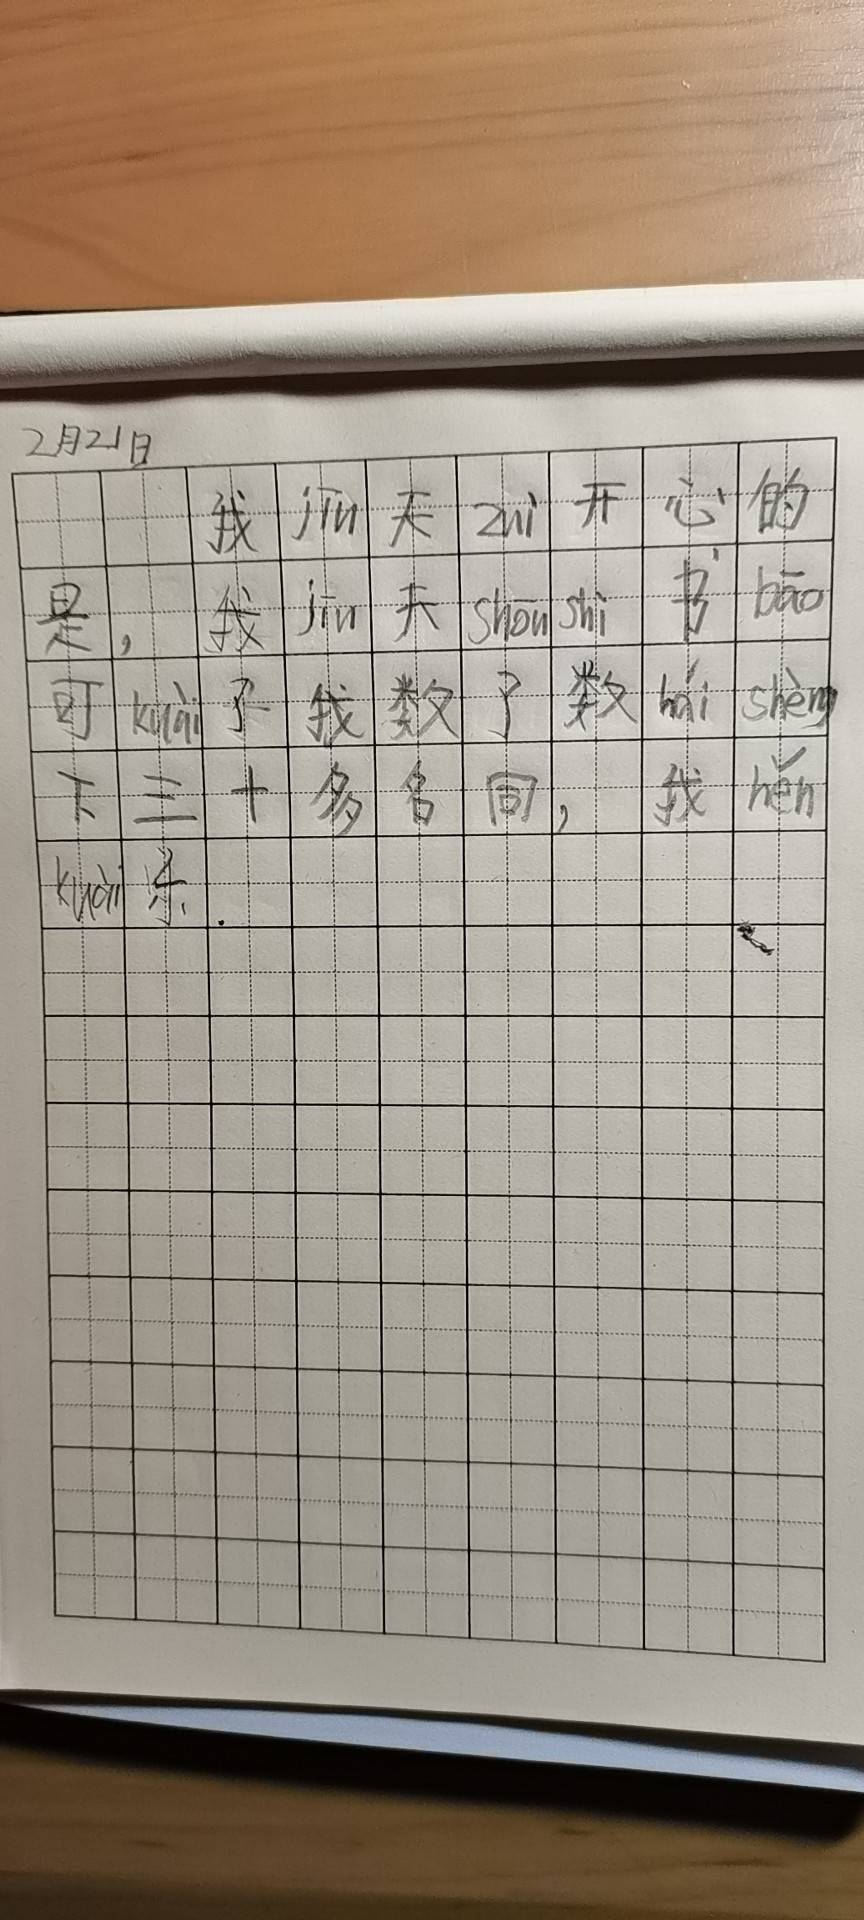 2月21日
我jīn天zuì开心的
是，我jīn天shōu shi书bāo
可kuài了我数了数hái shèng
下三十多名同，我hěn
kuài乐.